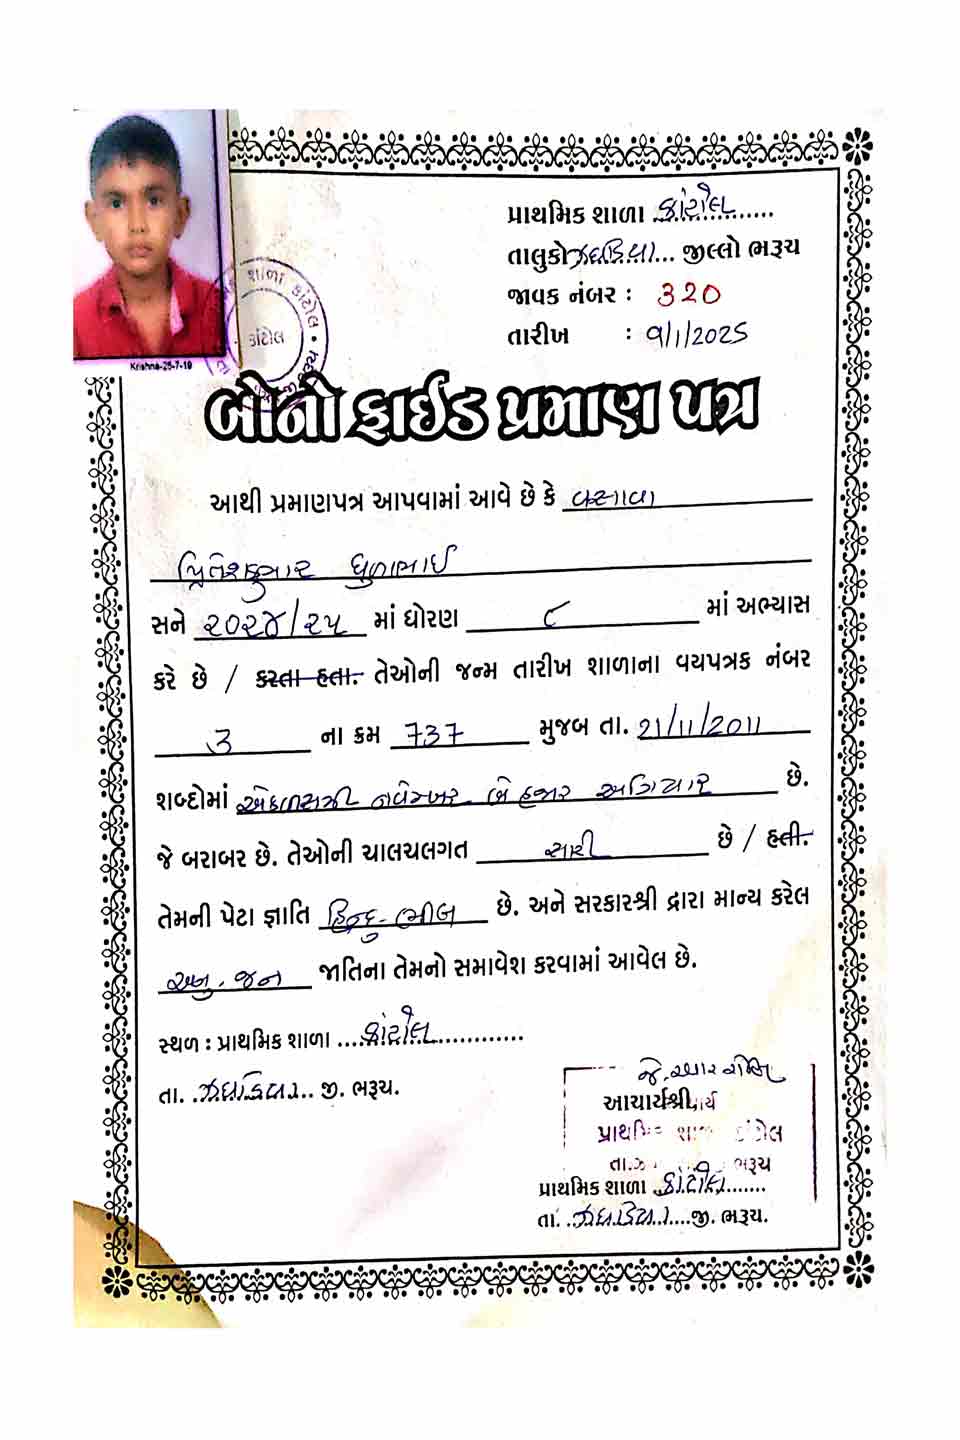 પ્રાથમિક શાળા ..કાંટોલ..........
તાલુકો ઝઘડિયા... જીલ્લો ભરૂચ
જાવક નંબર : 320
તારીખ : 9/1/2025
શાળા કાંટોલ
કાંટોલ
Krishna-25-7-19
બોનોફાઈડ પ્રમાણ પત્ર
આથી પ્રમાણપત્ર આપવામાં આવે છે કે વસાવા
પ્રિતેશકુમાર ધુળાભાઈ
સને ૨૦૨૪/૨૫ માં ધોરણ ૮ માં અભ્યાસ
કરે છે / કરતા હતા. તેઓની જન્મ તારીખ શાળાના વયપત્રક નંબર
૩ ના ક્રમ 737 મુજબ તા. 21/11/2011
શબ્દોમાં એકવીસમી નવેમ્બર બે હજાર અગિયાર છે.
જે બરાબર છે. તેઓની ચાલચલગત સારી છે / હતી.
તેમની પેટા જ્ઞાતિ હિન્દુ-ભીલ છે. અને સરકારશ્રી દ્વારા માન્ય કરેલ
અનુ. જન જાતિના તેમનો સમાવેશ કરવામાં આવેલ છે.
સ્થળ : પ્રાથમિક શાળા ....કાંટોલ.............
તા. .ઝઘડિયા... જી. ભરૂચ.
આચાર્યશ્રી,
પ્રાથમિક શાળા કાંટોલ
ભરૂચ
પ્રાથમિક શાળા ..કાંટોલ.......
તા. .ઝઘડિયા.....જી. ભરૂચ.